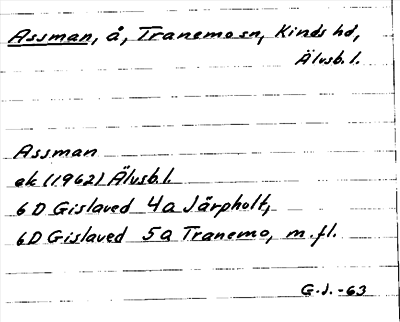 Assman, å, Tranemo sn, Kinds hd,
Älvsb. l.
Assman
ek (1962) Älvsb. l.
6D Gislaved 4a Järpholt,
6D Gislaved 5a Tranemo, m.fl.
G.J. -63